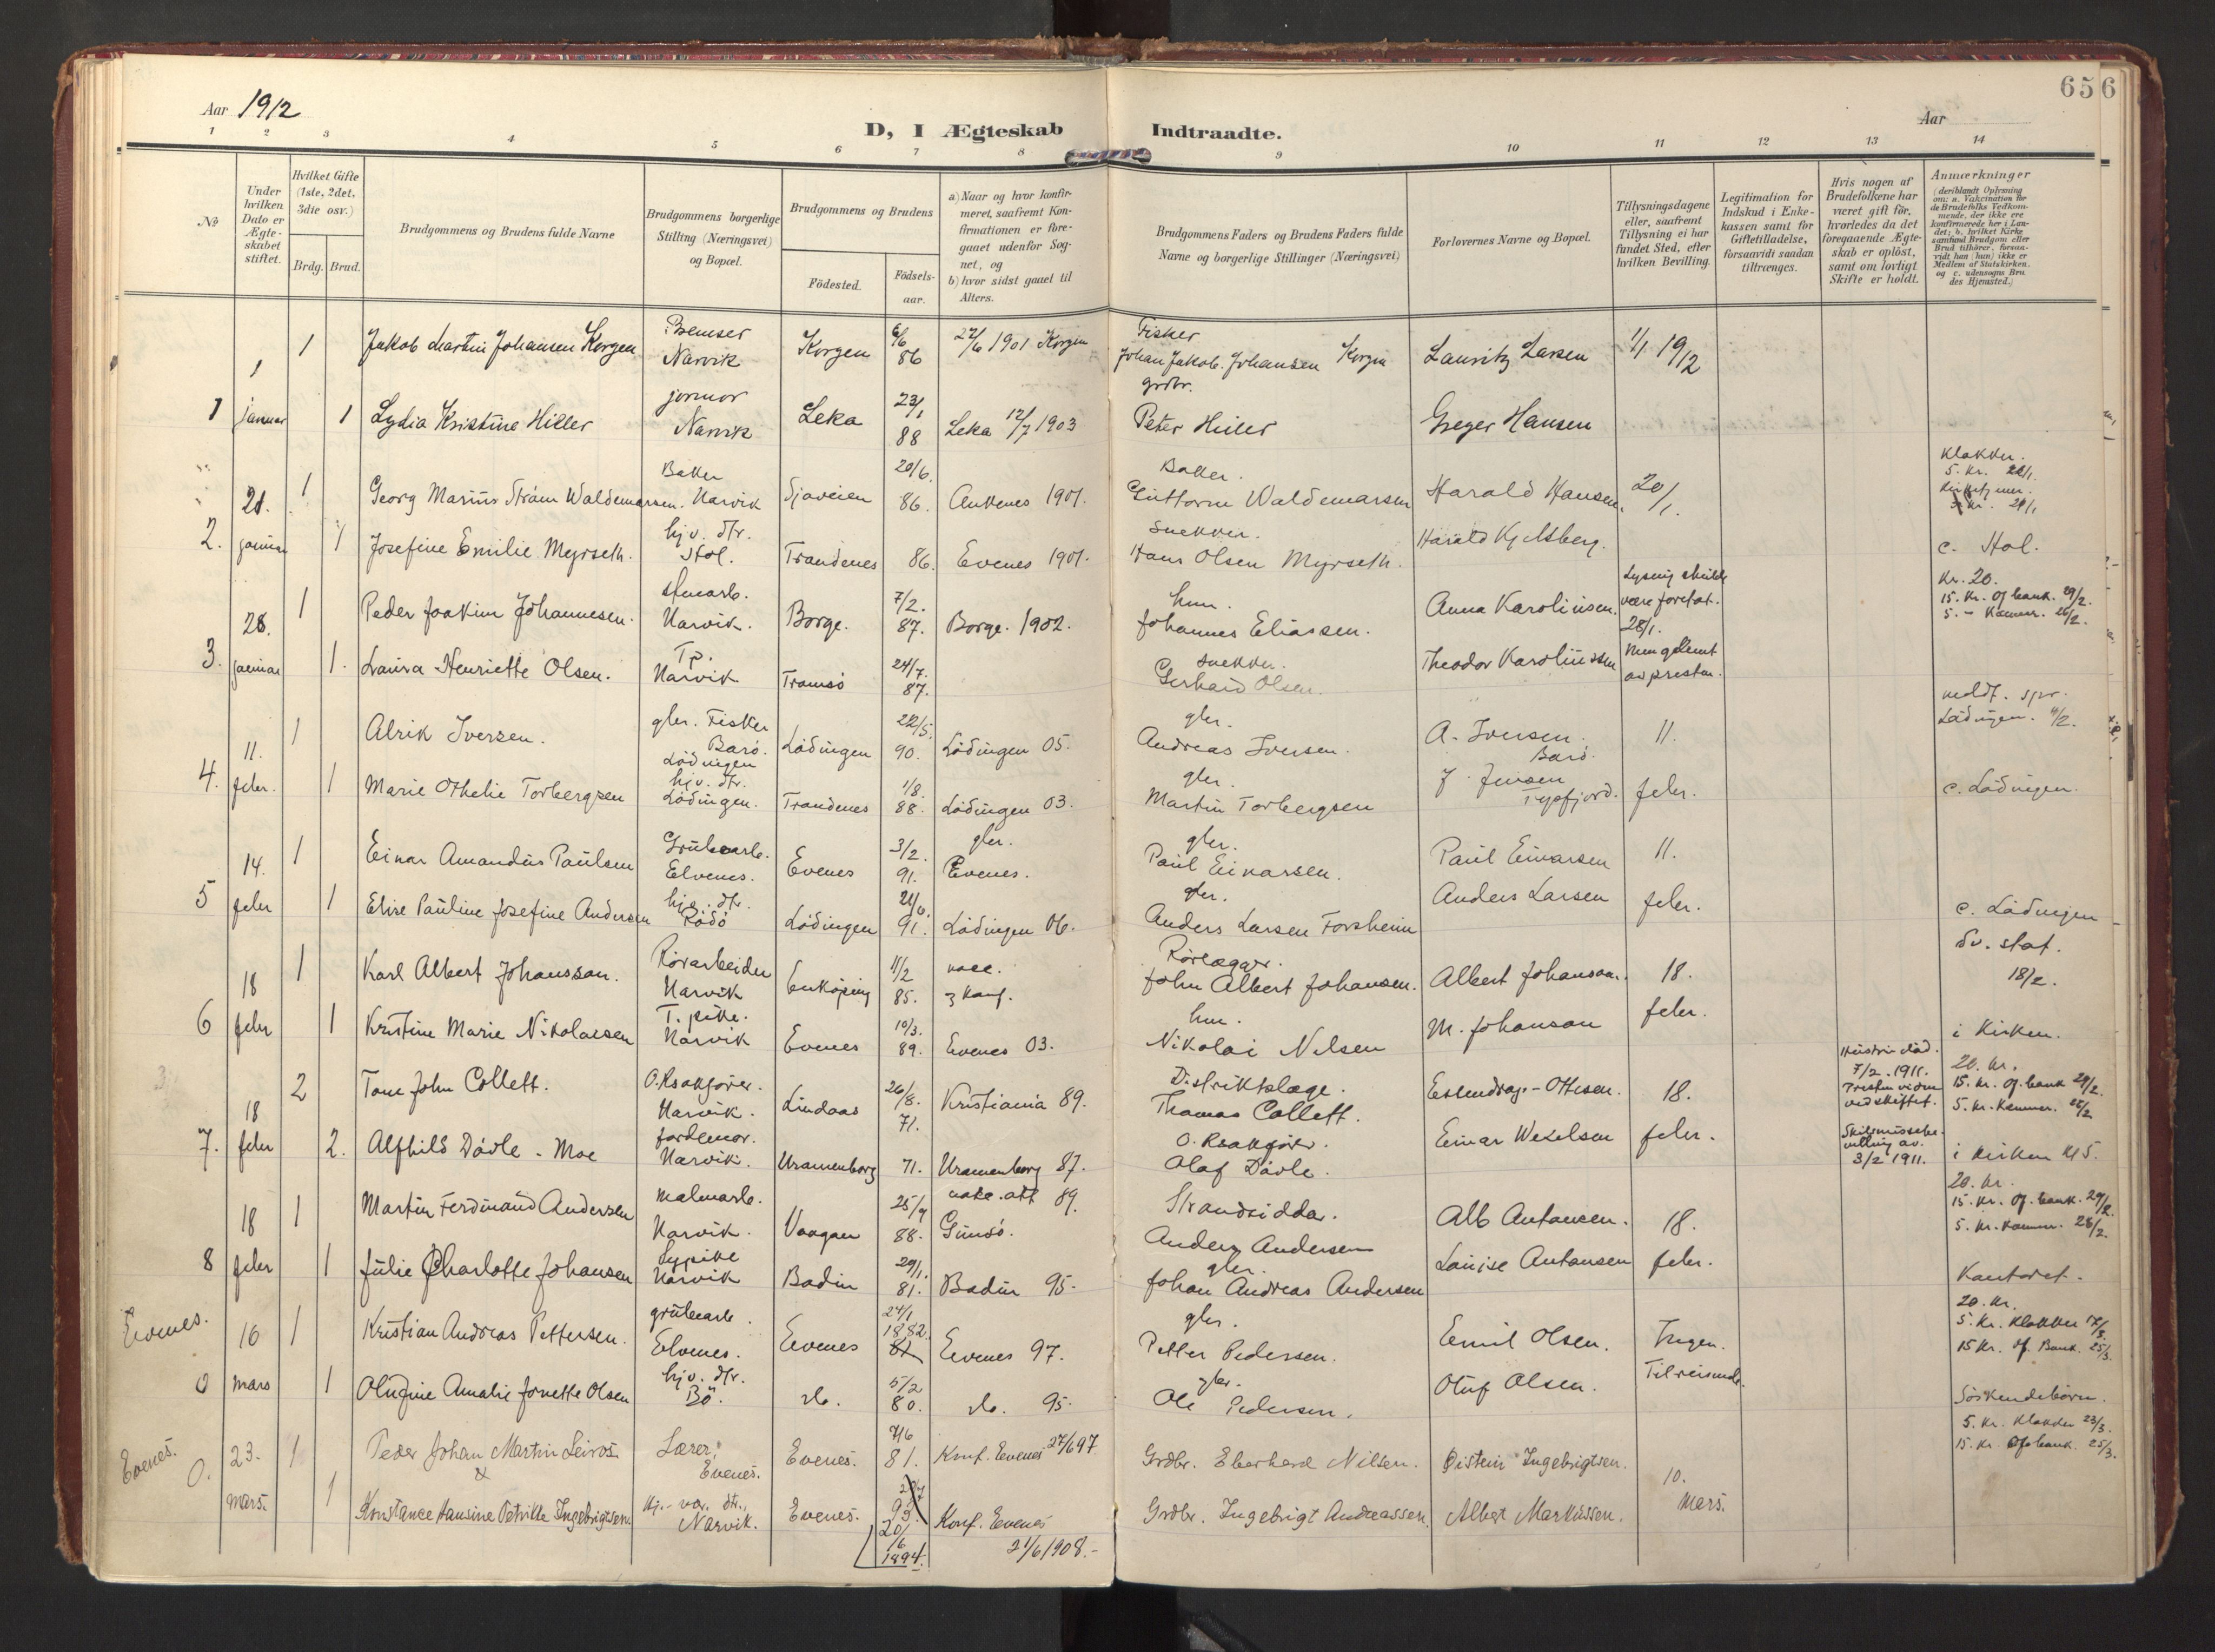 656
Aar 1912
D, I Ægteskab Indtraadte.
Aar
1 2 3 4 5 6 7 8 9 10 11 12 13 14
№
Under hvilken Dato er Ægteskabet stiftet.
Hvilket Gifte (1ste, 2det, 3die osv.)
Brdg. Brud.
Brudgommens og Brudens fulde Navne
Brudgommens borgerlige Stilling (Næringsvei) og Bopæl.
Brudgommens og Brudens
Födested.
Födsels-aar.
a) Naar og hvor konfir-
meret, saafremt Kon-
firmationen er fore-
gaaet udenfor Sog-
net, og
b) hvor sidst gaaet til
Alters.
Brudgommens Faders og Brudens Faders fulde
Navne og borgerlige Stillinger (Næringsvei)
Forlovernes Navne og Bopæl.
Tillysningsdagene
eller, saafremt
Tillysning ei har
fundet Sted, efter
hvilken Bevilling.
Legitimation for
Indskud i Enke-
kassen samt for
Giftetilladelse,
forsaavidt saadan
tiltrænges.
Hvis nogen af
Brudefolkene har
været gift för,
hvorledes da det
foregaaende Ægte-
skab er oplöst,
samt om lovligt
Skifte er holdt.
Anmærkninger
(deriblandt Oplysning
om: a. Vaccination for
de Brudefolks Vedkom-
mende, der ikke ere
konfirmerede her i Lan-
det; b. hvilket Kirke
samfund Brudgom eller
Brud tilhörer, forsaa-
vidt han (hun) ikke er
Medlem af Statskirken,
og c. udensogns Bru
des Hjemsted.)
1 1 Jakob Martin Johansen Korgen Bremser Narvik Korgen 6/6 86 27/6 1901 Korgen Fisker Johan Jakob Johansen Korgen Lauritz Larsen 1/1 1912
1 januar 1 Lydia Kristine Hiller jormor Narvik Leka 23/1 88 Leka 12/7 1903 grdbr. Peter Hiller Greger Hansen
21. 1 Georg Marius Strøm Waldemarsen. Baker Narvik Sjøveien 20/6. 86. Ankenes 1901. Baker. Guttorm Waldemarsen Harald Hansen. 20/1. Klokker. 5. kr.
2. januar 1 Josefine Emilie Myrseth. hjv. dtr. Hol. Trandenes 86. Evenes 1901. Snekker. Hans Olsen Myrseth. Harald Kjelsberg. c. Hol.
28. 1 Peder Joakim Johannesen. Narvik. Borge. 7/2. 87. Borge. 1902. hmn. Johannes Eliassen. Anna Karolinsen. Lysning skulde være foretat. 28/1. Kr. 20. 15. kr. Of. bank. 29/2. 5. - Kæmner. 26/2.
3. januar 1. Laura Henriette Olsen. Tp. Narvik Tromsö 24/7. 87. snekker. Gerhard Olsen. Theodor Karolinssen Men glemt av presten.
11. 1 Alrik Iversen. gbr. Fisker Barö. Lödingen Lödingen 22/5. 90. Lödingen 05. gbr. Andreas Iversen. A. Iversen. Barö. 11. meldt. spr. Lödingen. 11/2.
4. febr. 1 Marie Othelie Torbergsen hjv. dtr. Lödingen. Trandenes 1/8. 88. Lödingen 03. gbr. Martin Torbergsen J. Jensen Tysfjord. febr. c. Lödingen.
14. 1 Einar Amandus Paulsen Grubearb. Elvenes. Evenes 3/2. 91. gbr. Evenes. gbr. Paul Einarsen. Paul Einarsen 11.
5 febr 1 Elise Pauline Josefine Andersen hjv. dtr. Rödö Lödingen 21/6. 91. Lödingen 06. gbr. Anders Larsen Forsheim Anders Larsen febr. c. Lödingen
18 1 Karl Albert Johansson. Rörarbeider Narvik Enköping 11/2 85. vacc. Rörlægger. John Albert Johansen. Albert Johanson. 18. Sv. stat. 18/2.
6 febr 1 Kristine Marie Nikolaesen T. pike. Narvik Evenes 10/3. 89. Evenes 03. hmn. Nikolai Nilsen M. Johanson febr. i Kirken.
18 2 Tom John Collett. O.Rsakförer. Narvik. Lindaas 26/8. 71. Kristiania 89. Distriktslæge. Thomas Collett. Essendrop-Ottesen. 18. Hustru död. 7/2. 1911. 20. kr. 15. kr. Of. bank 29/2. 5. kr. Kæmner. 26/2
7. febr 2. Alfhild Dövle - Moe jordmor. Narvik. Uranienborg 71. Uranienborg 87. O. Rsakförer. Olaf Dövle. Einar Wexelsen febr. Skilsmissebevilling av. 3/2 1911. i kirken kl 5.
18 1 Martin Ferdinand Andersen Malmarb. Narvik. Vaagan 25/9 88. 89. Gimsö. Strandsidder. Anders Andersen Alb Antonsen. 18. 20. kr. 15. kr. Of. bank. 29/2. 5. kr. Kæmner. 28/2.
8 febr 1 Julie Charlotte Johansen Sypike Narvik Bodin 29/1. 81. Bodin 95. gbr. Johan Andreas Andersen Louise Antonsen febr. Kontoret.
Evenes. 16 1 Kristian Andreas Pettersen. grubearb. Elvenes. Evenes 24/1 1882. Evenes 97. gbr. Petter Pedersen. Emil Olsen. Ingen. 20. kr. 5. kr. Klokker 17/3. 15 Kr. Of. Bank. 25/3.
0 mars 1 Olufine Amalie Jonette Olsen hjv. dtr. Bö. do. 5/2 80. do. 95. gbr. Ole Pedersen. Oluf Olsen. Tilreisende. Söskendebörn.
Evenes. 0. 23. 1 Peder Johan Martin Leiros & Lærer, Evenes. Evenes. 7/6 81. Konf. Evenes 27/6 97 Grdbr. Eberhard Nilsen. Øistein Ingebrigtsen. 10. mars. 5. Kr. Klokker 23/3. 15. kr. Of bank. 25/3.
mars. 1 Konstance Hansine Petrikke Ingebrigtsen Hj.-vær. dtr., Narvik. Evenes. 93. 20/6 1894. Konf. Evenes 21/6 1908.- Grdbr. Ingebrigt Andreassen. Albert Markussen.